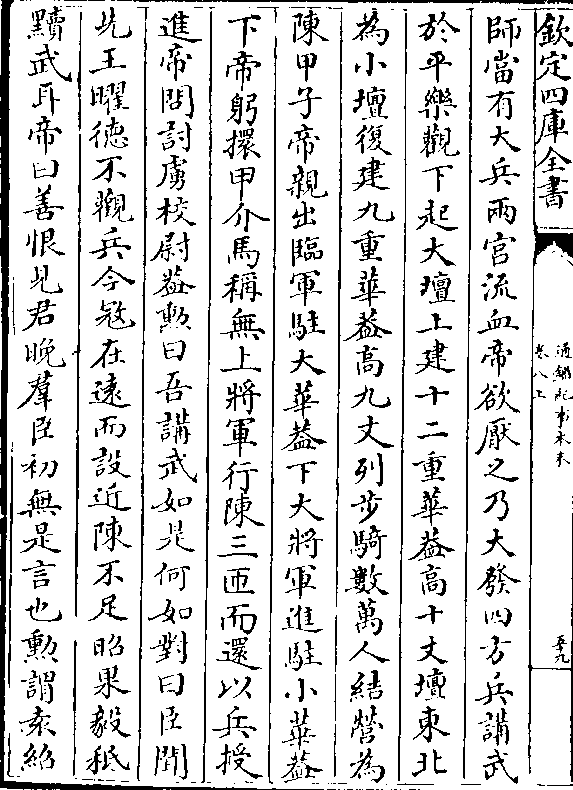 欽定四庫全書
通鑑紀事本末
卷八上
五十九
師當有大兵兩宮流血帝欲厭之乃大發四方兵講武
於平樂觀下起大壇上建十二重華蓋高十丈壇東北
為小壇復建九重華蓋高九丈列步騎數萬人結營為
陳甲子帝親出臨軍駐大華蓋下大將軍進駐小華蓋
下帝躬擐甲介馬稱無上將軍行陳三匝而還以兵授
進帝問討虜校尉蓋勲曰吾講武如是何如對曰臣聞
先王曜德不觀兵今宼在遠而設近陳不足昭果毅秪
黷武耳帝曰善恨見君晚羣臣初無是言也勲謂袁紹